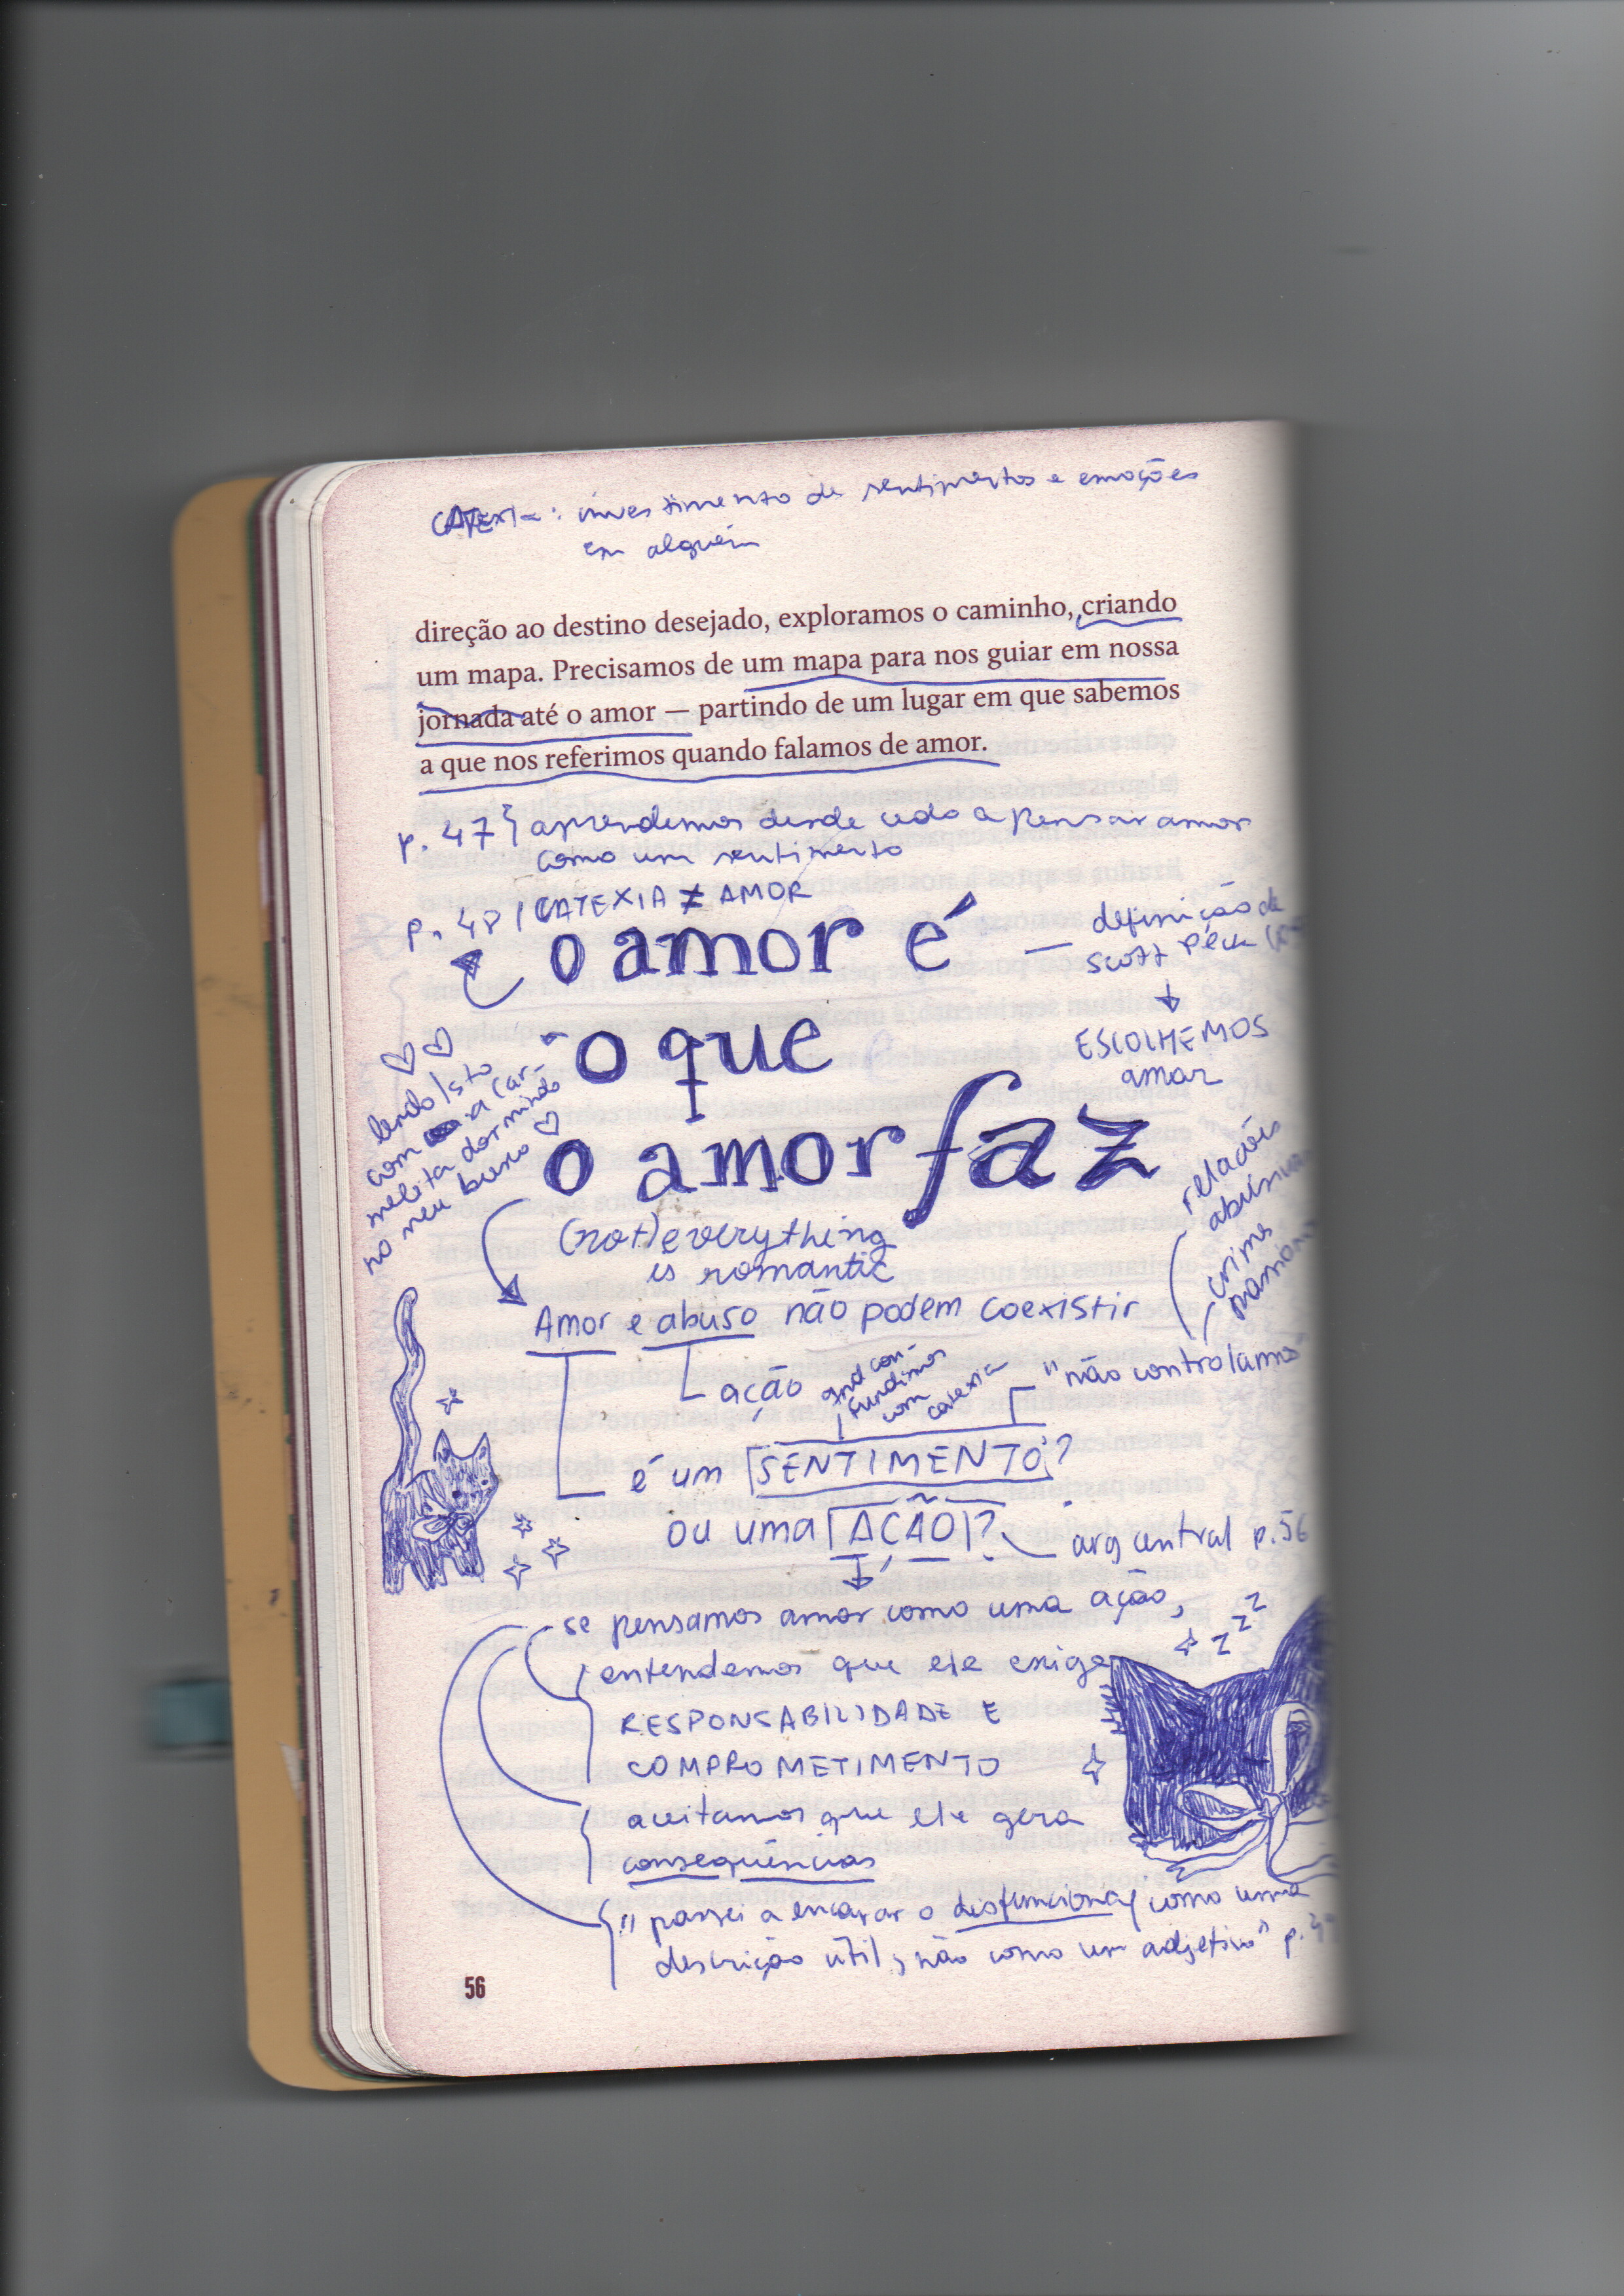 CATEXIA: investimento de sentimentos e emoções
em alguém
direção ao destino desejado, exploramos o caminho, criando
um mapa. Precisamos de um mapa para nos guiar em nossa
jornada até o amor — partindo de um lugar em que sabemos
a que nos referimos quando falamos de amor.
p. 47 } aprendemos desde cedo a pensar amor
como um sentimento
p. 48 / CATEXIA ≠ AMOR
o amor é
o que
o amor faz
— definição de
Scott Peck
↓
ESCOLHEMOS
amar
♡ ♡
lendo isto
com a Car-
melita dormindo
no meu buxo ♡
(not) everything
is romantic
relações
abusivas
crimes
passionais
Amor e abuso não podem coexistir
ação
qnd con-
fundimos
com
catexia
"não controlamos"
é um SENTIMENTO?
ou uma AÇÃO?
arg central p. 56
se pensamos amor como uma ação,
entendemos que ele exige
RESPONSABILIDADE E
COMPROMETIMENTO
aceitamos que ele gera
consequências
"passei a encarar o disfuncional como uma
descrição útil, não como um adjetivo" p.
z z z
56